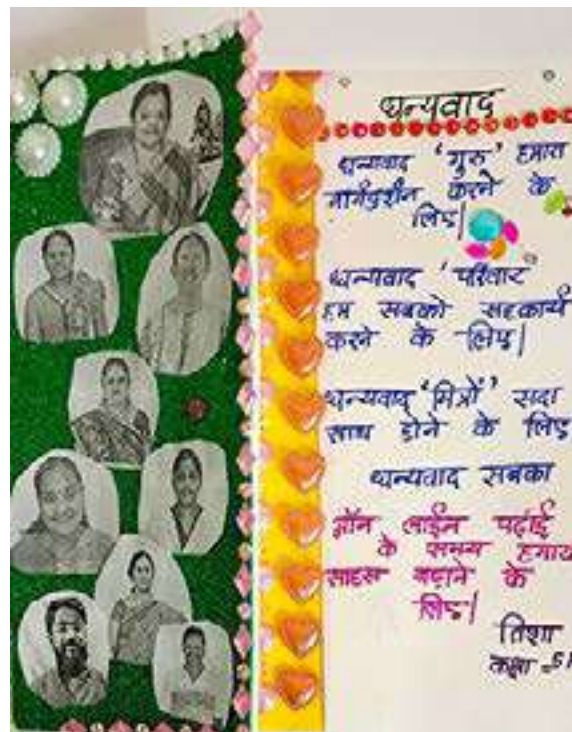 धन्यवाद
धन्यवाद 'गुरु' हमारा
मार्गदर्शन करने के
लिए|
धन्यवाद 'परिवार'
हम सबको सहकार्य
करने के लिए|
धन्यवाद 'मित्रों' सदा
साथ होने के लिए
धन्यवाद सबका
ऑन लाईन पढ़ाई
के समय हमारा
साहस बढ़ाने के
लिए|
तिशा
कक्षा -